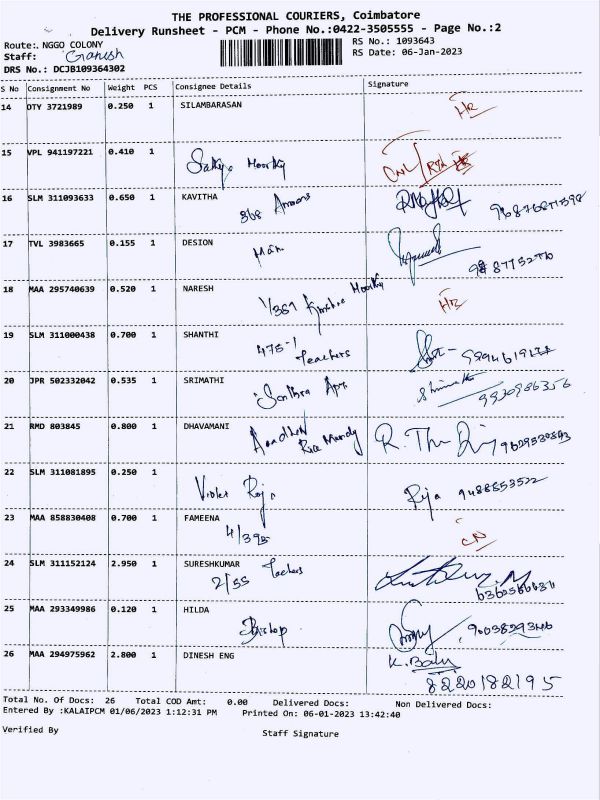 THE PROFESSIONAL COURIERS, Coimbatore
Delivery Runsheet - PCM - Phone No.:0422-3505555 - Page No.:2
Route:. NGGO COLONY
RS No.: 1093643
Staff: Ganesh
RS Date: 06-Jan-2023
DRS No.: DCJB109364302
S No Consignment No Weight PCS Consignee Details Signature
14 DTY 3721989 0.250 1 SILAMBARASAN
15 VPL 941197221 0.410 1
Sathya Moorthy
16 SLM 311093633 0.650 1 KAVITHA
17 TVL 3983665 0.155 1 DESION
18 MAA 295740639 0.520 1 NARESH
19 SLM 311000438 0.700 1 SHANTHI
475-1
Teachers
20 JPR 502332042 0.535 1 SRIMATHI
9930986356
21 RMD 803845 0.800 1 DHAVAMANI
Rice Mandy
22 SLM 311081895 0.250 1
Violet Roja
Roja 9488853522
23 MAA 858830408 0.700 1 FAMEENA
4/395
CN
24 SLM 311152124 2.950 1 SURESHKUMAR
2/55 Teachers
25 MAA 293349986 0.120 1 HILDA
Bishop
26 MAA 294975962 2.800 1 DINESH ENG
K. Balu
8220182195
Total No. Of Docs: 26 Total COD Amt: 0.00 Delivered Docs: Non Delivered Docs:
Entered By :KALAIPCM 01/06/2023 1:12:31 PM Printed On: 06-01-2023 13:42:40
Verified By
Staff Signature